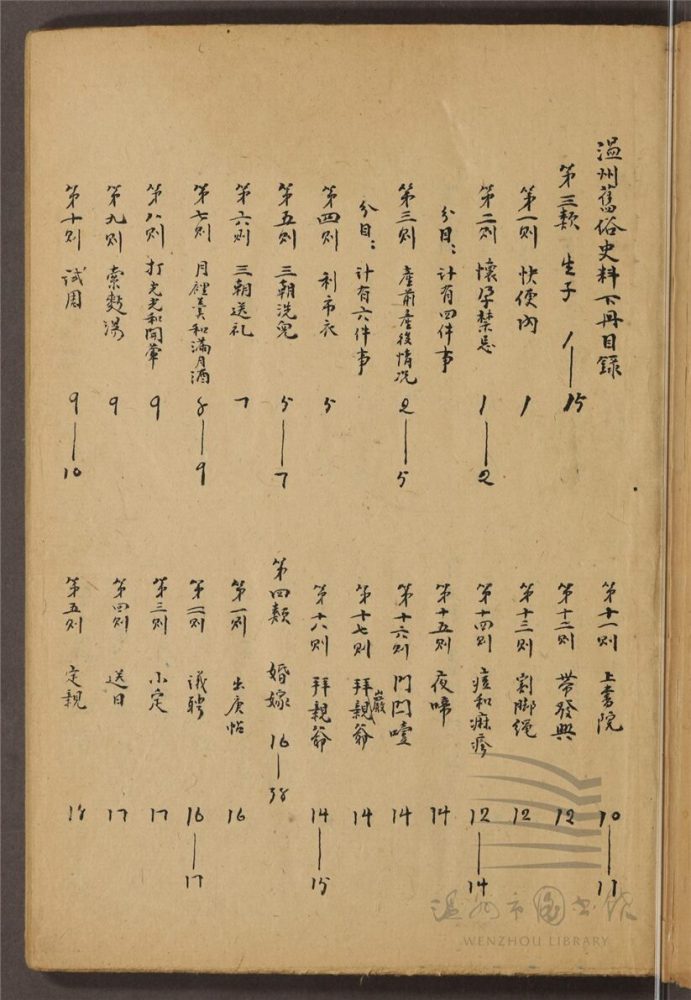 温州舊俗史料下册目錄
第三類 生子 1—15
第一则 快便肉 1
第二则 懷孕禁忌 1—2
分目：计有四件事
第三则 產前產後情况 2—5
分目：计有六件事
第四则 利市衣 5
第五则 三朝洗兒 5—7
第六则 三朝送礼 7
第七则 月裡羹和滿月酒 8—9
第八则 打光光和開葷 9
第九则 索麪湯 9
第十则 试周 9—10
第十一则 上書院 10—11
第十二则 带發興 12
第十三则 割脚绳 12
第十四则 痘和麻疹 12—14
第十五则 夜啼 14
第十六则 門閂噎 14
第十七则 拜親巖爺 14
第十八则 拜親爺 14—15
第四類 婚嫁 16—38
第一则 出庚帖 16
第二则 議聘 16—17
第三则 小定 17
第四则 送日 17
第五则 定親 18
温州市图书馆
WENZHOU LIBRARY